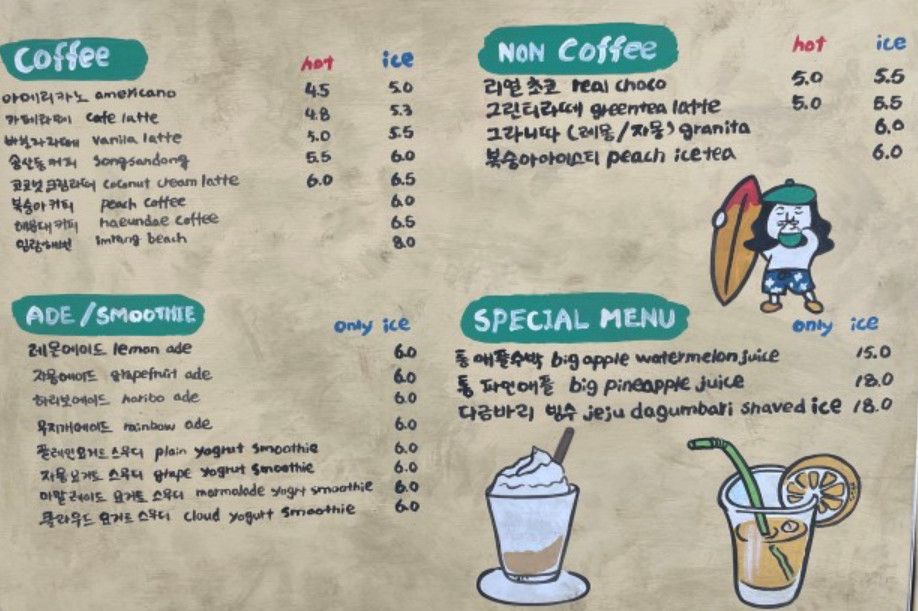 Coffee hot ice
아메리카노 americano 4.5 5.0
카페라떼 cafe latte 4.8 5.3
바닐라라떼 vanila latte 5.0 5.5
송산동커피 Songsandong 5.5 6.0
코코넛크림라떼 coconut cream latte 6.0 6.5
복숭아커피 peach coffee 6.0
해운대커피 haeundae coffee 6.5
임랑해변 imrang beach 8.0
NON Coffee hot ice
리얼 초코 real choco 5.0 5.5
그린티라떼 greentea latte 5.0 5.5
그라니따 (레몽/자몽) granita 6.0
복숭아아이스티 peach icetea 6.0
ADE/SMOOTHIE only ice
레몬에이드 lemon ade 6.0
자몽에이드 grapefruit ade 6.0
하리보에이드 haribo ade 6.0
무지개에이드 rainbow ade 6.0
플레인요거트 스무디 plain yogrut smoothie 6.0
자몽요거트 스무디 grape yogrut smoothie 6.0
마말레이드 요거트 스무디 marmalade yogrt smoothie 6.0
클라우드 요거트 스무디 cloud yogurt smoothie 6.0
SPECIAL MENU only ice
통 애플수박 big apple watermelon juice 15.0
통 파인애플 big pineapple juice 18.0
다금바리 빙수 jeju dagumbari shaved ice 18.0